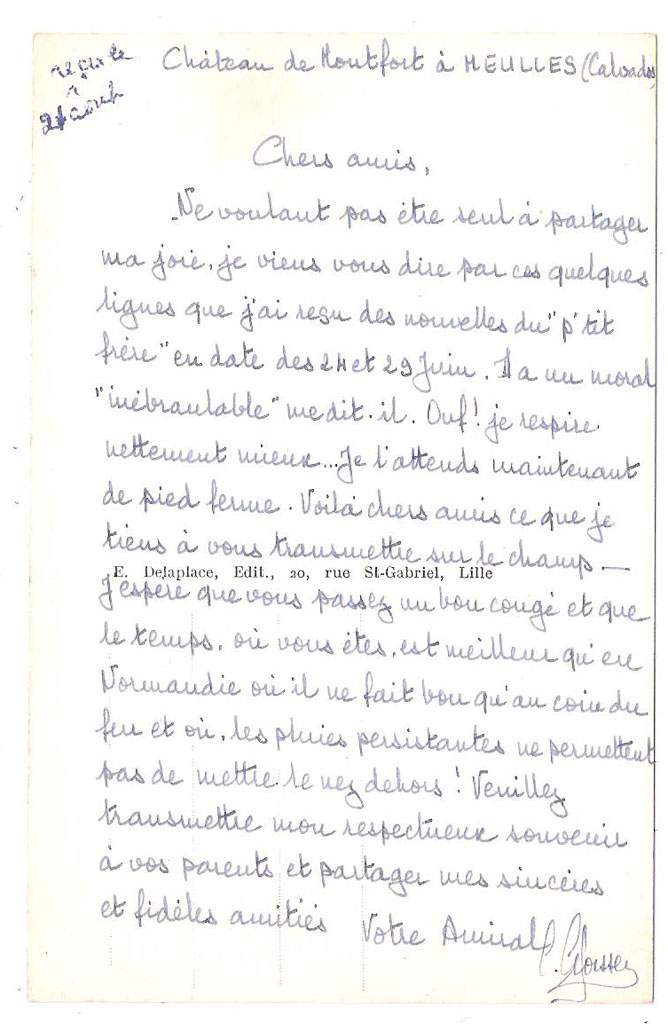 reçu le
Château de Montfort à MEULLES (Calvados)
août
Chers amis,
Ne voulant pas être seul à partager
ma joie, je viens vous dire par ces quelques
lignes que j'ai reçu des nouvelles du "p'tit
frère" en date des 24 et 29 Juin. Il a un moral
"inébranlable" me dit-il. Ouf! je respire
nettement mieux... Je l'attends maintenant
de pied ferme. Voilà chers amis ce que je
tiens à vous transmettre sur le champ —
E. Delaplace, Edit., 20, rue St-Gabriel, Lille
J'espère que vous passez un bon congé et que
le temps, où vous êtes, est meilleur qu'en
Normandie où il ne fait bon qu'au coin du
feu et où, les pluies persistantes ne permettent
pas de mettre le nez dehors! Veuillez
transmettre mon respectueux souvenir
à vos parents et partager mes sincères
et fidèles amitiés Votre Amiral